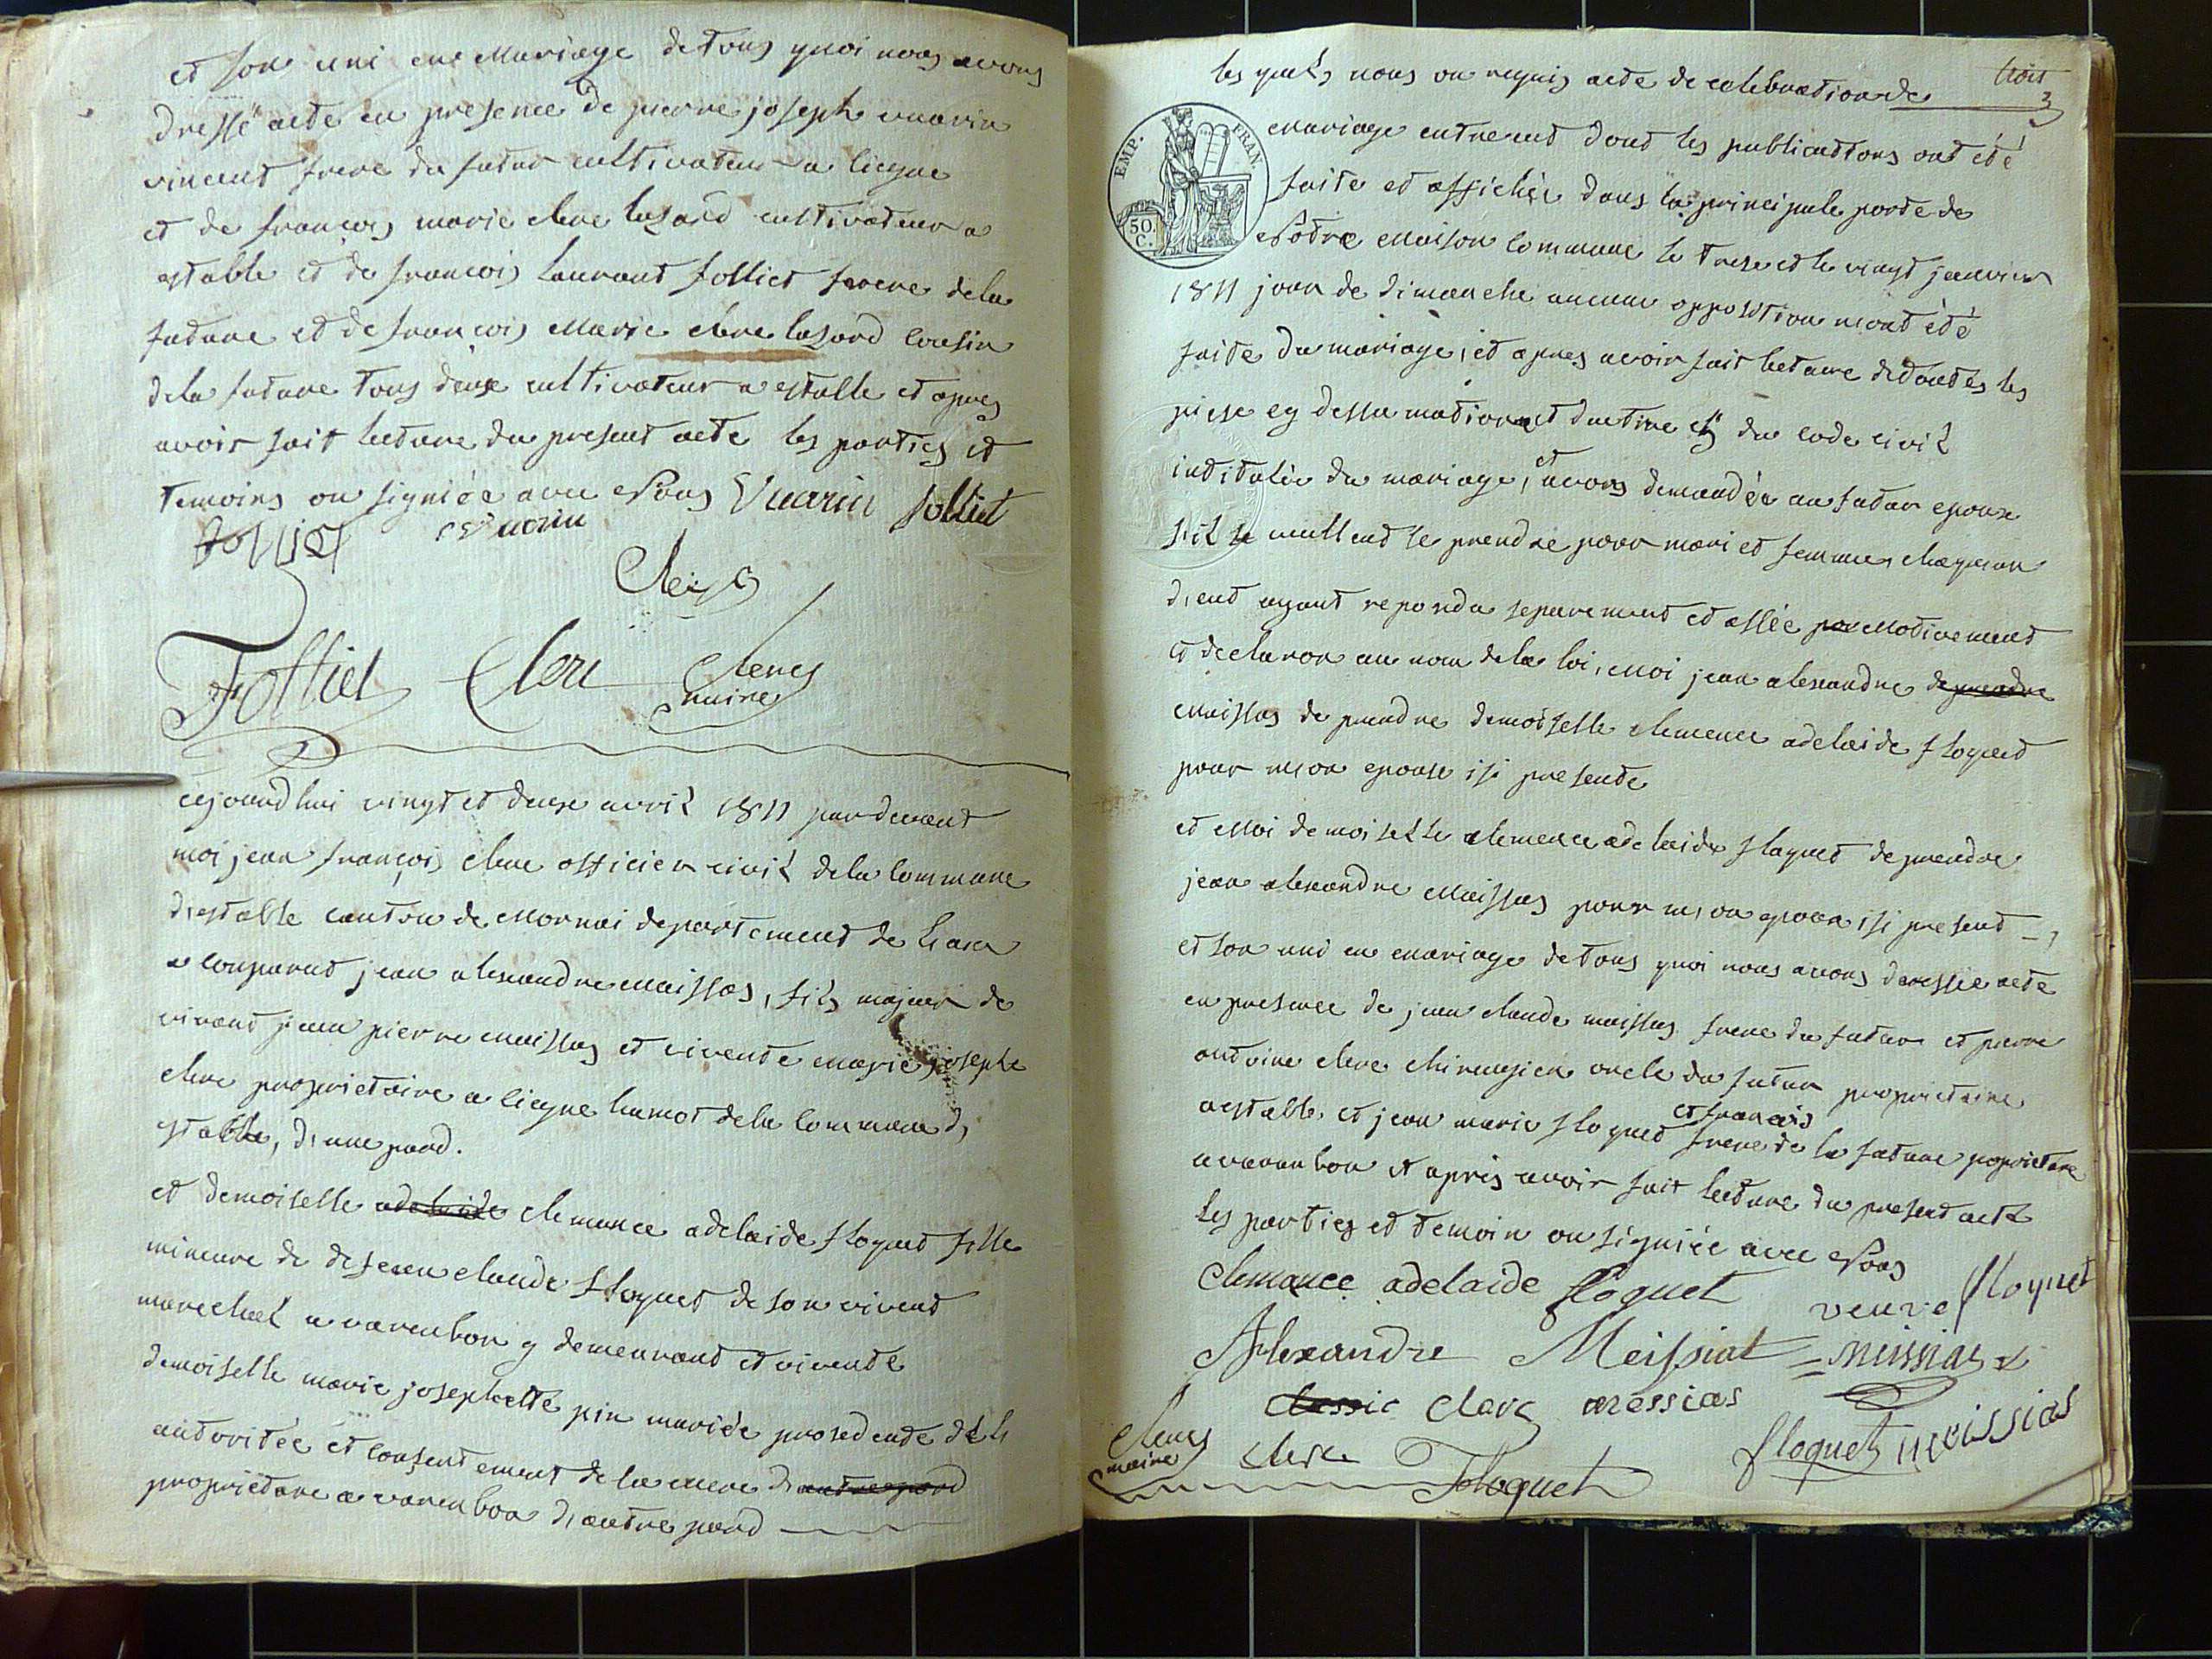 et son uni en mariage de tous quoi nous avons
dressé acte en presence de pierre joseph vuarin
vincent frere du futur cultivateur a licgne
et de françois marie clerc lasard cultivateur a
estable et de francois laurant folliet frere dela
future et de francois Marie clerc lasard cousin
dela future tous deux cultivateur a estable et apres
avoir fait lecture du present acte les parties et
temoins on signiée avec Nous Vuarin folliet
folliet vuarin
Clerc
Folliet Clerc Clerc
maire
cejourdhui vingt et deuxe avril 1811 pardevant
moi jean françois clerc officier civil dela commune
d,estable canton de Mornai departement de Lain
a comparut jean alexandre Maissas, fils majeur de
vivant jean pierre maissas et vivente marie josephe
clerc proprietaire a licgne hamot dela commune d,
estable, d,une pard.
et demoiselle adelaide clemance adelaide floquet fille
mineure de defeu claude floquet de son vivent
marechal a varenbon y demeurant et vivente
demoiselle marie josephette pin mariée prosedente de l
autoritée et consentement de la mere d,autre pard
proprietare a varenbon d,autre pard
trois
3
les quels nous on requis acte de celebration de
EMP. FRAN.
50. C.
mariage entreeut dont les publications ont été
faite et affichée dans la principale porte de
Notre Maison commune le treze et le vingt janvier
1811 jour de dimanche aucune opposition nont été
faite du mariage, et apres avoir fait lecture de toutes les
piese cy dessu mationet du titre du code civil
intitulée du mariage, et avons demandée au futur epoux
s,il se veullent se prendre pour mari et femme, chaqu'un
d,eut ayant repondu separement et affirmotivement
et declaron au nom dela loi, Moi jean alexandre de prendre
Maissas de prendre demoiselle clemence adelaide floquet
pour mon epouse isi presente
et Moi demoiselle clemence adelaide flaquet de prendre
jean alexandre Maissas pour mon epoux isi present
et son uni en mariage de tous quoi nous avons dressée acte
en presence de jean claude maissas frere du futur et pierre
antoine clerc chirurgien oncle du futur proprietaire
aestable, et jean marie floquet et francois frere de la future proprietare
a varanbon et apres avoir fait lecture du present acte
Les parties et temoin on signiée avec Nous
Clemance adelaide floquet veuve floquet
Alexandre Meissiat = meissias
clerc messias
Clerc
maire
clerc Floquet floquet meissias